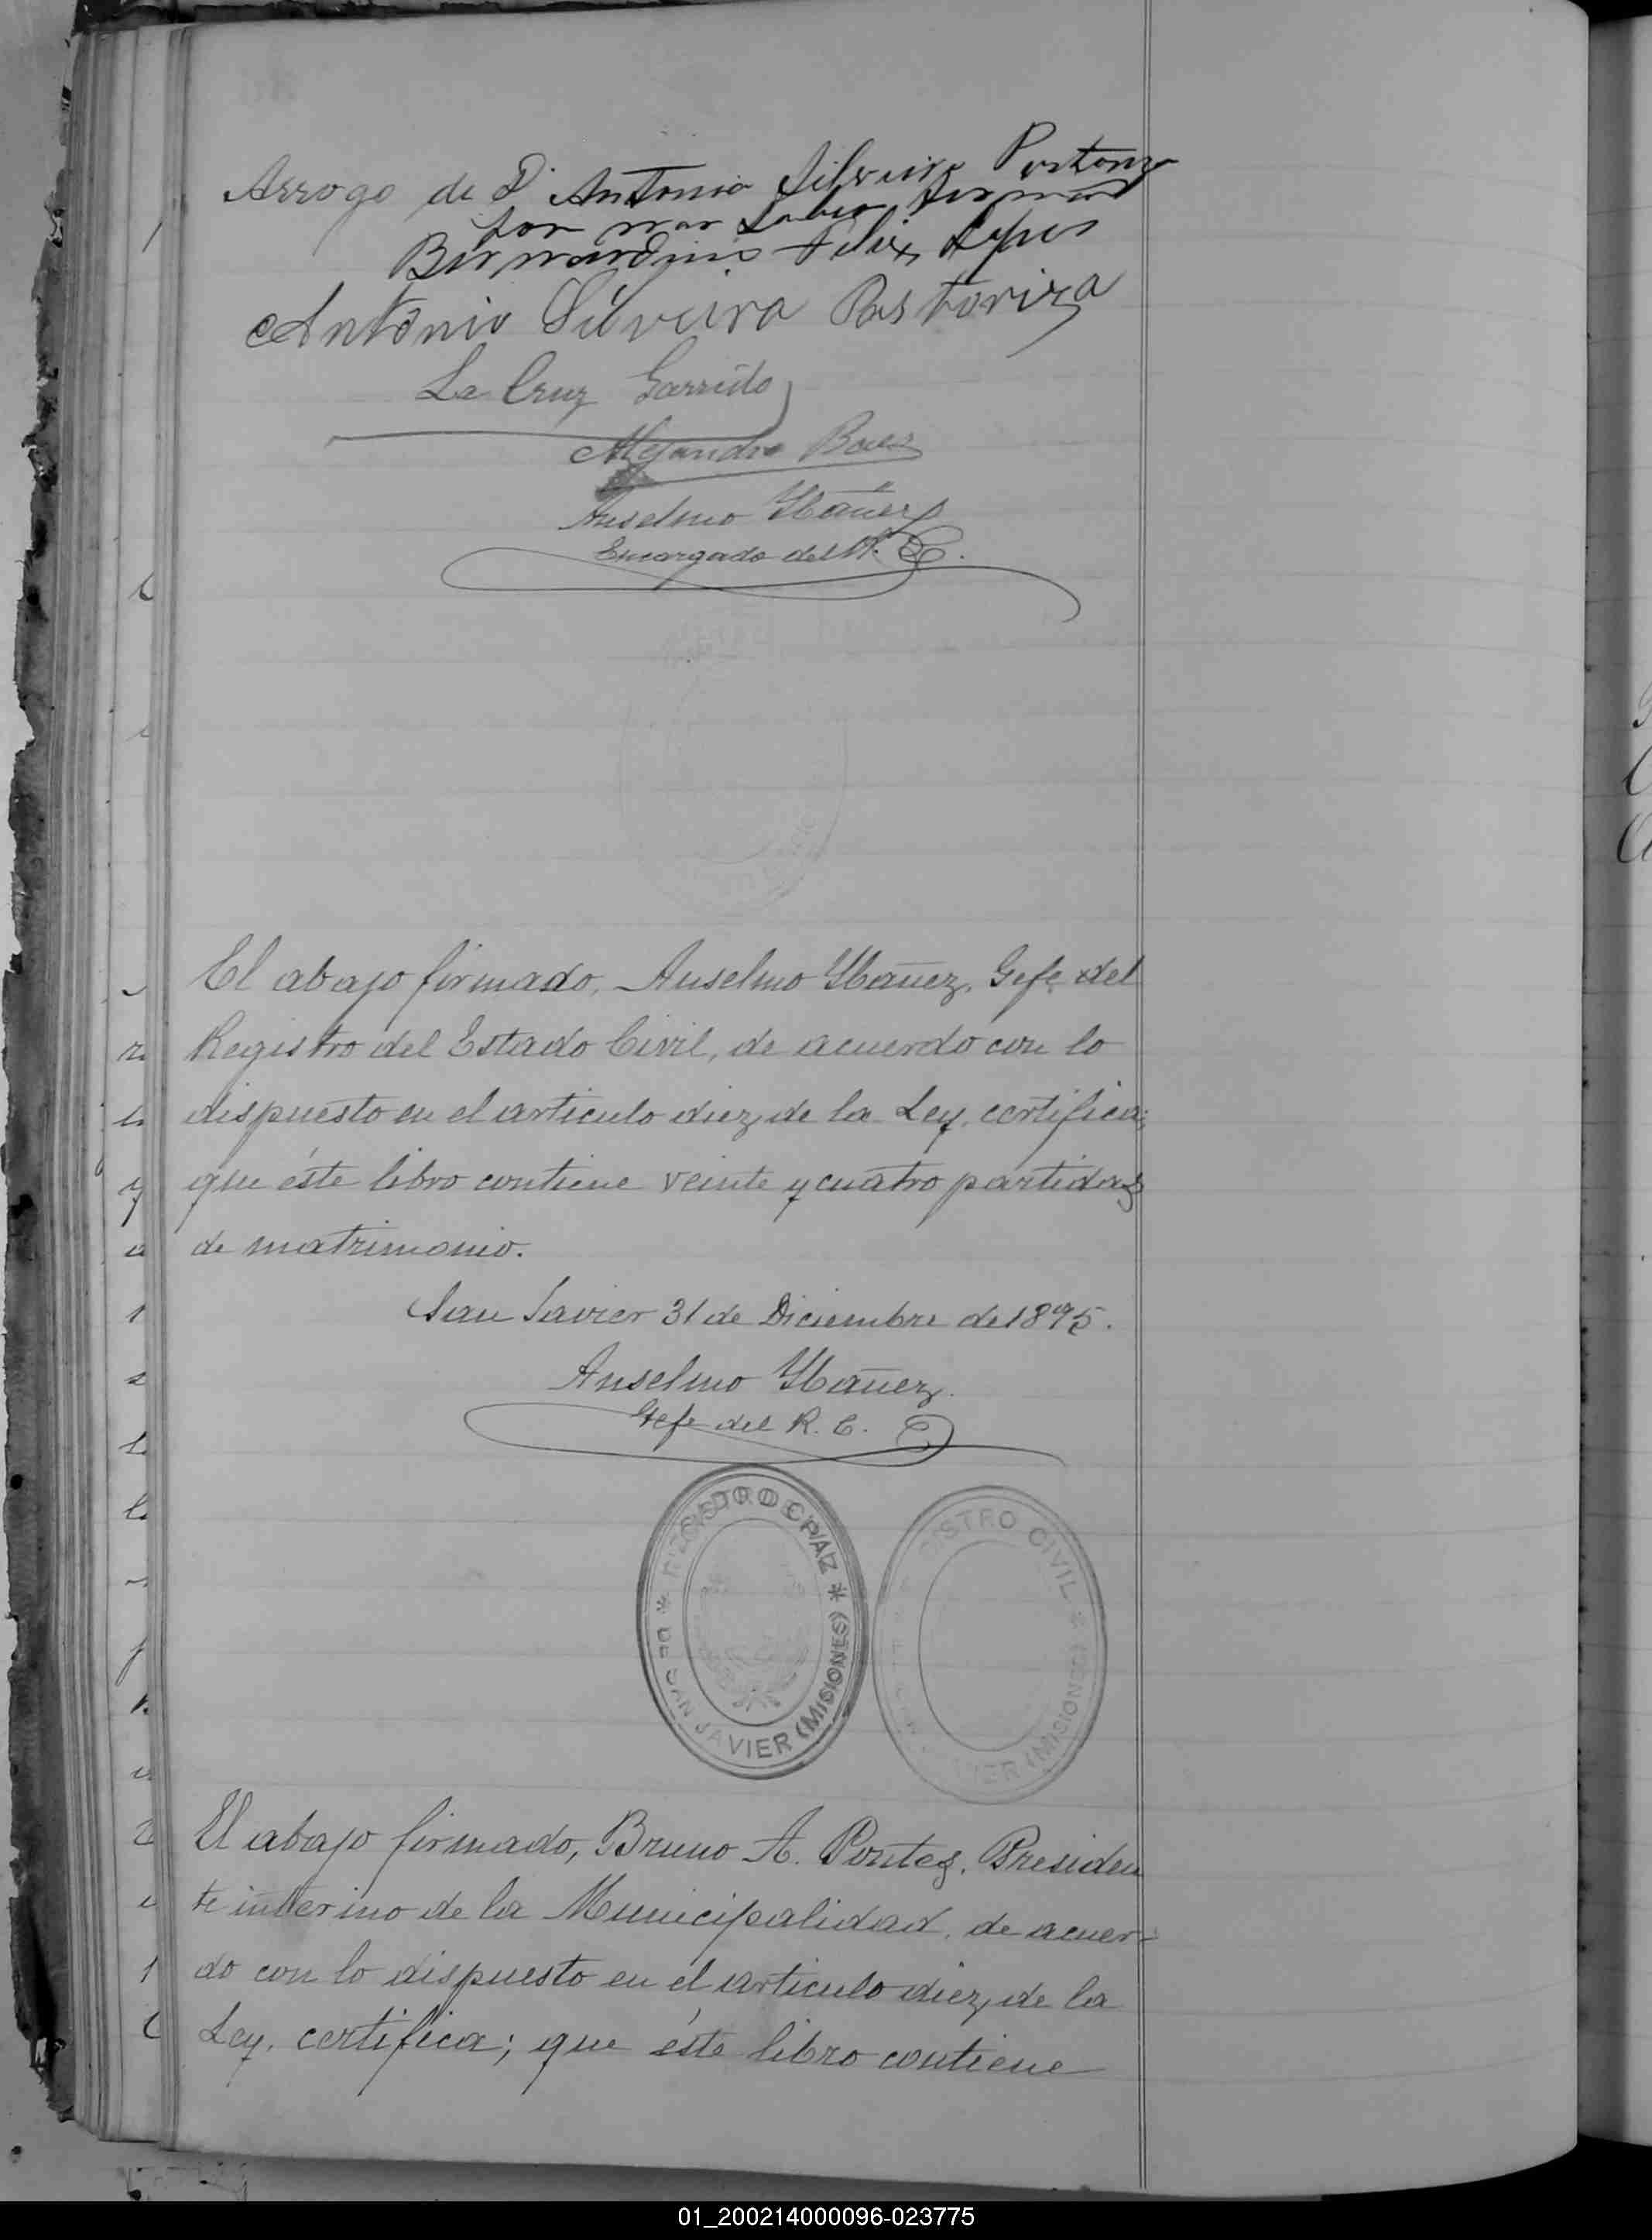 Arrogo de D. Antonio Silveira
por nao Saber
Bernardino Felix Lopes
Antônio Silveira Pastoriza
La Cruz Garrido
Alejandro Baes
Anselmo Ybañez
Encargado del R. C.
El abajo firmado, Anselmo Ybañez, Gefe del
Registro del Estado Civil, de acuerdo con lo
dispuesto en el articulo diez, de la Ley, certifica;
que éste libro contiene veinte y cuatro partidas
de matrimonio.
San Javier 31 de Diciembre de 1895.
Anselmo Ybañez
Gefe del R. C.
DE SAN JAVIER (MISIONES)
ISTRO CIVIL
(MISIONES)
El abajo firmado, Bruno A. Pontes, Presiden
te interino de la Municipalidad, de acuer-
do con lo dispuesto en el articulo diez, de la
Ley, certifica; que éste libro contiene
01_200214000096-023775